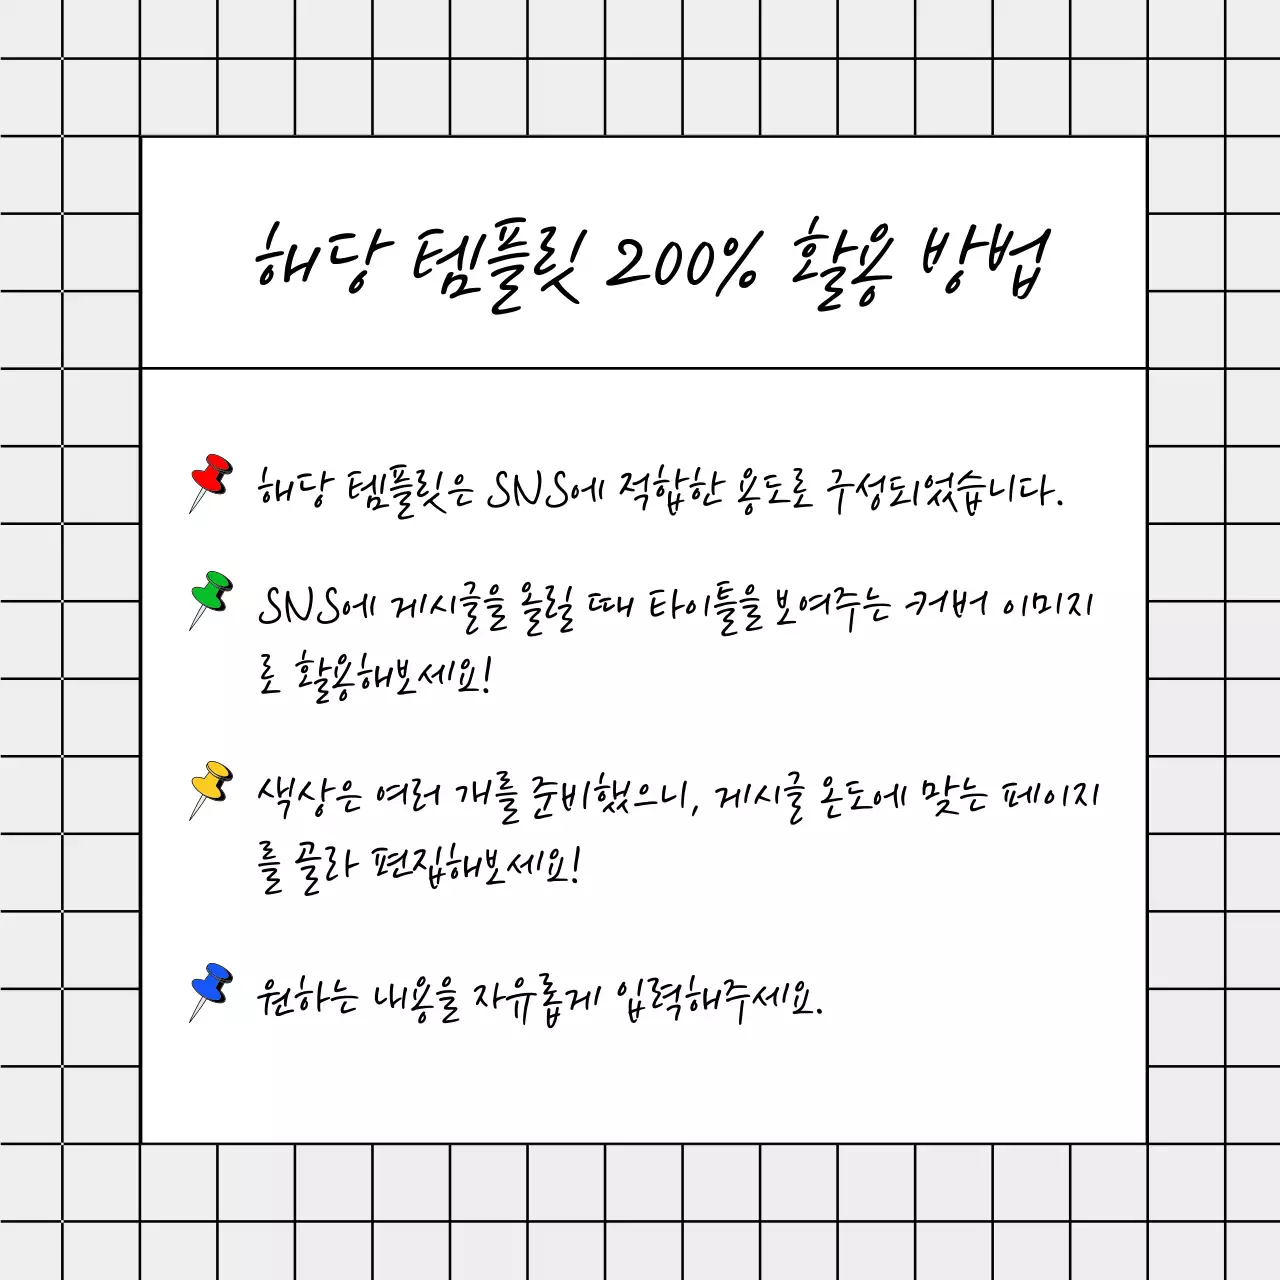 해당 템플릿 200% 활용 방법
해당 템플릿은 SNS에 적합한 용도로 구성되었습니다.
SNS에 게시글을 올릴 때 타이틀을 보여주는 커버 이미지
로 활용해보세요!
색상은 여러 개를 준비했으니, 게시글 온도에 맞는 페이지
를 골라 편집해보세요!
원하는 내용을 자유롭게 입력해주세요.